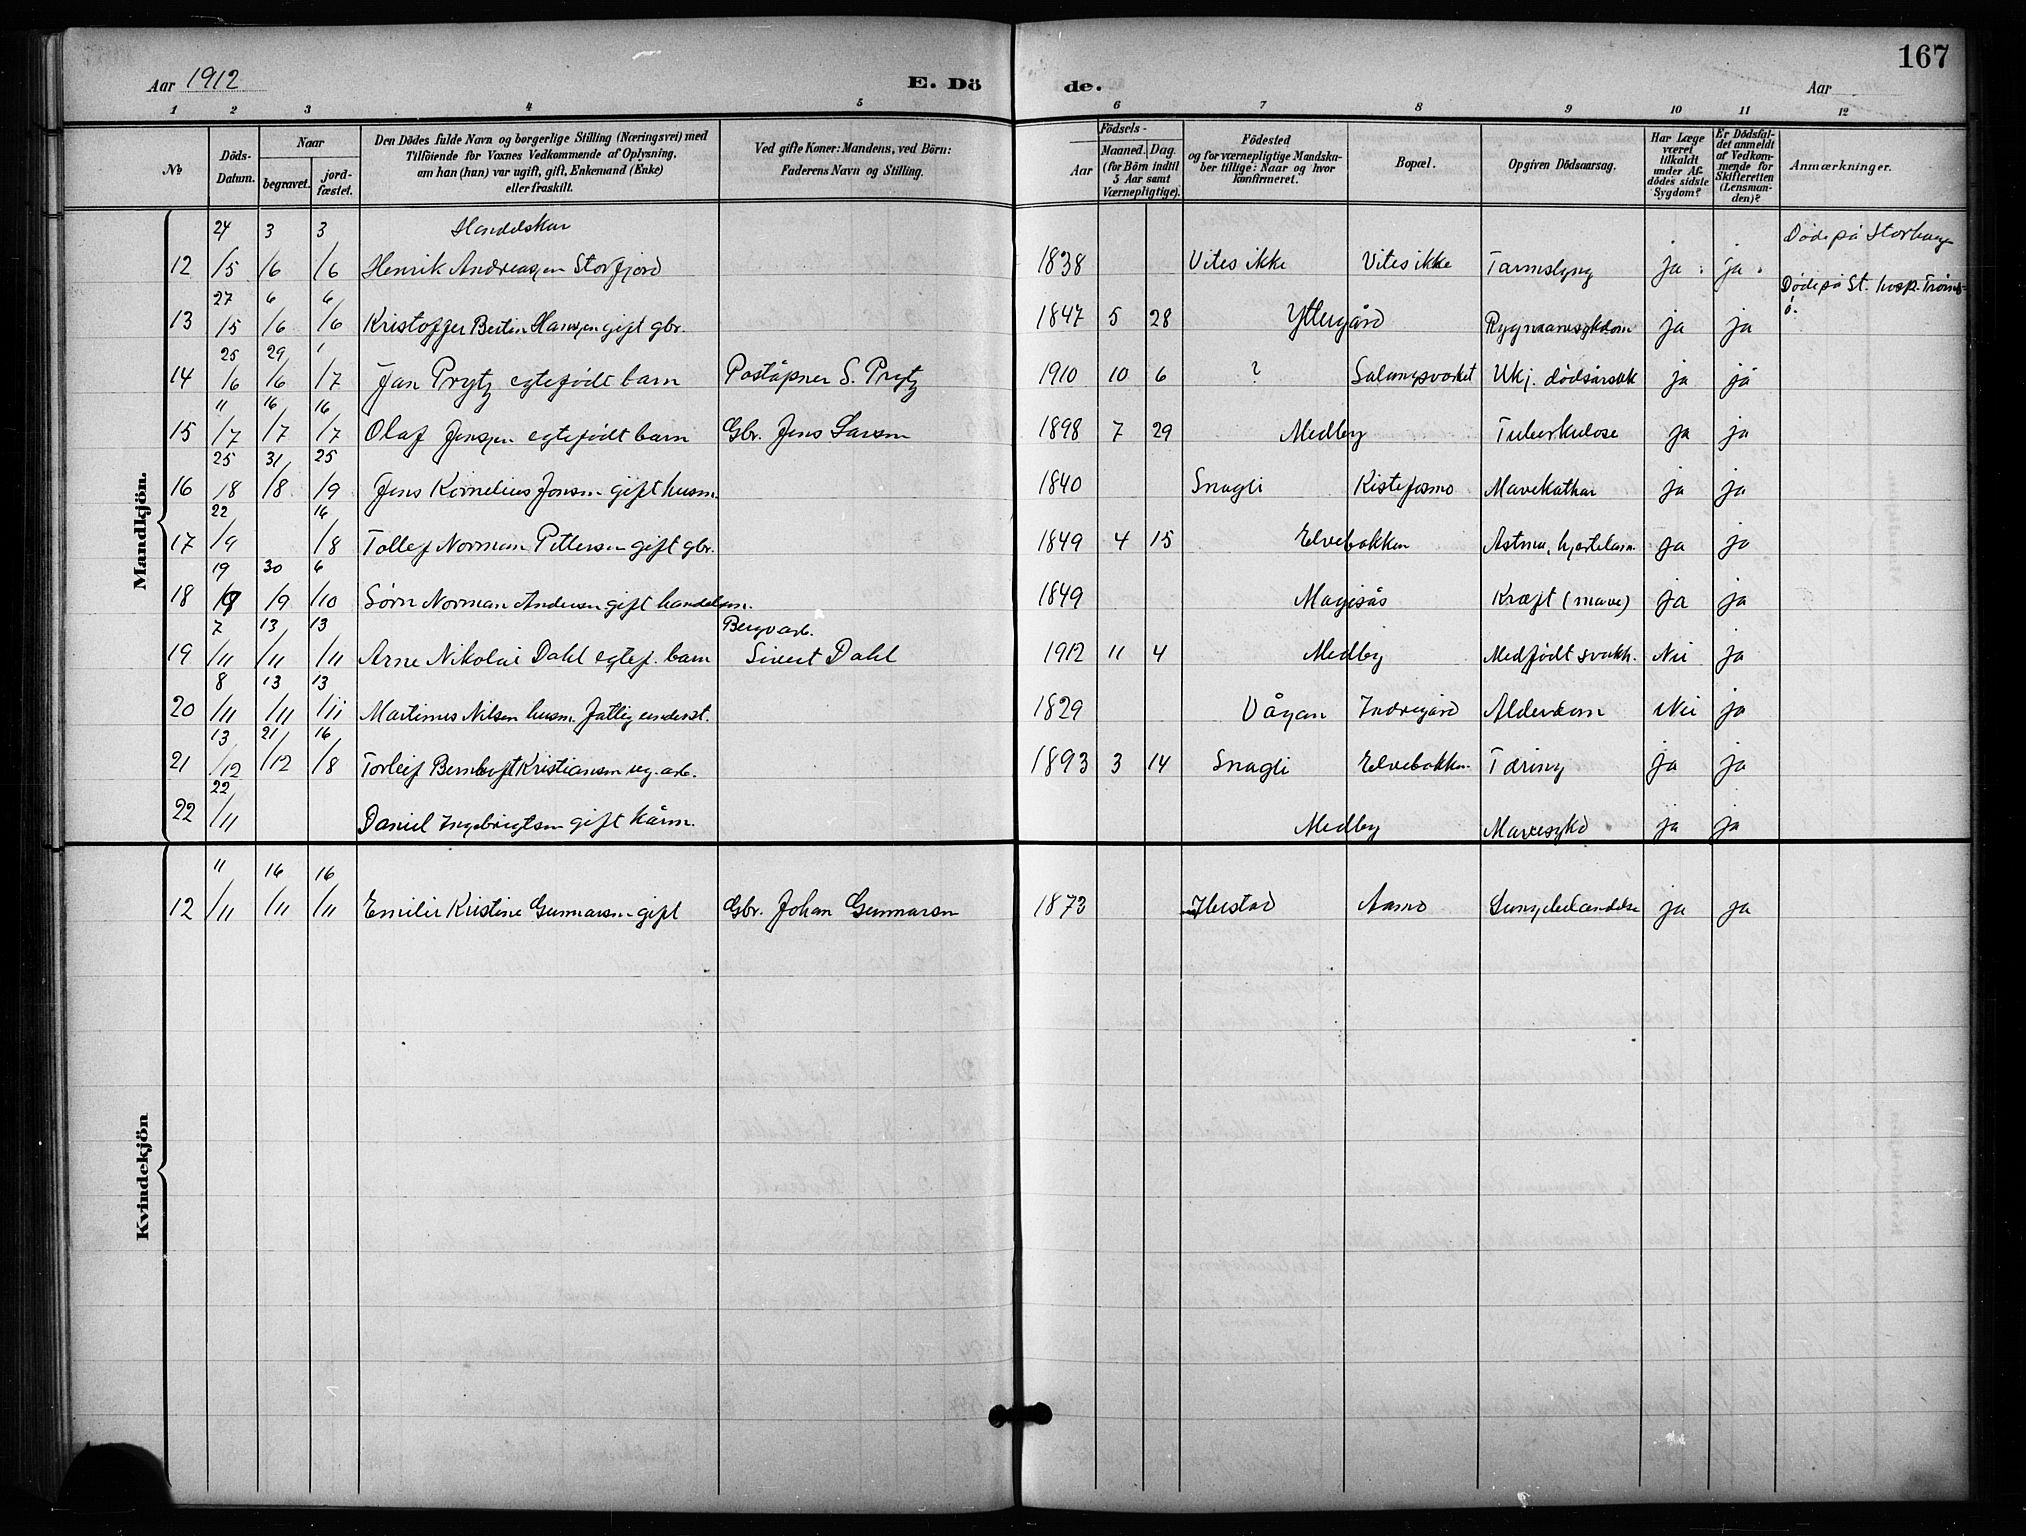 167
Aar 1912 E. Dö de. Aar
1 2 3 4 5 6 7 8 9 10 11 12
No Döds-Datum. Naar begravet. jord-fæstet. Den Dödes fulde Navn og borgerlige Stilling (Næringsvei) med Tilföiende for Voxnes Vedkommende af Oplysning, om han (hun) var ugift, gift, Enkemand (Enke) eller fraskilt. Ved gifte Koner: Mandens, ved Börn: Faderens Navn og Stilling. Födsels- Aar Maaned. Dag. (for Börn indtil 5 Aar samt Værnepligtige). Födested og for værnepligtige Mandskaber tillige: Naar og hvor konfirmeret. Bopæl. Opgiven Dödsaarsag. Har Læge været tilkaldt under Afdödes sidste Sygdom? Er Dödsfaldet anmeldt af Vedkommende for Skifteretten (Lensmanden)? Anmærkninger.
Mandkjön.
24 3 3 Handelskar Døde på
12 /5 /6 /6 Henrik Andreasen Storfjord 1838 Vites ikke Vites ikke Tarmslyng ja ja
27 6 6 Døde på St. hosp. Tromsö.
13 /5 /6 /6 Kristoffer Bertin Hansen gift gbr. 1847 5 28 Yttergård Rygmarvsykdom ja ja
25 29 1
14 /6 /6 /7 Jan Prytz egtefødt barn Poståpner S. Prytz 1910 10 6 ? Salangsverket Ukj. dødsårsak ja ja
11 16 16
15 /7 /7 /7 Olaf Jensen egtefødt barn Gbr. Jens Larsen 1898 7 29 Medby Tuberkulose ja ja
25 31 25
16 18 /8 /9 Jens Kornelius Jonsen gift husm. 1840 Snagli Kistefosmo Mavekathar ja ja
22 16
17 /9 /8 Tollef Norman Pettersen gift gbr. 1849 4 15 Elvebakken Astma, hjertelam. ja ja
19 30 6
18 /9 /9 /10 Sørn Norman Andersen gift handelsm. 1849 Kræft (mave) ja ja
7 13 13 Bergvarb.
19 /11 /11 /11 Arne Nikolai Dahl egtef. barn Sivert Dahl 1912 11 4 Medby Medfødt svakh. Nei ja
8 13 13
20 /11 /11 /11 Martinus Nilsen husm. fattigunderst. 1829 Vågan Indregård Alderdom Nei ja
13 21 16
21 /12 /12 /8 Torleif Bernhoft Kristiansen ug. arb. 1893 3 14 Snagli Elvebakken Tæring ja ja
22
22 /11 Daniel Ingebrigtsen gift kårm. Medby Mavesykd ja ja
Kvindekjön
11 16 16
12 /11 /11 /11 Emilie Kristine Gunnarsen gift Gbr. Johan Gunnarsen 1873 Ibestad Aamo Lungebetændelse ja ja